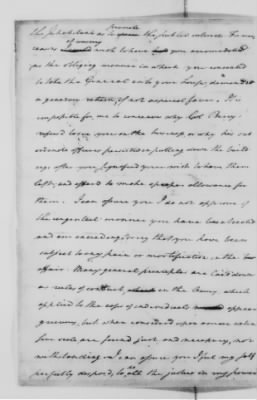 promote
the Inhabitants as to the public interest. Your
reasons of warmly with where you accommodated
as the obliging manner in which you consented
to take the General into your House, demanded
a generous return, if not especial favor. It is
impossible for me to conceive why Col Berry
refused to on you on the or why his sub
ordinate officers persisted in pulling down the build
ings after you signified you wish to have them
left, and offered to make a proper allowance for
them. I can assure you I do not approve of
the ungenteel manner you have been treated
and am exceeding sorry that you have been
subject to any pain or mortification in the
affair. Many general principles are laid down
as rules of conduct in the Army, which
applied to the case of individuals appear
grievous, but when considered upon a more extensive
scale are found just and necessary, not
withstanding in I can assure you I feel my self
perfectly disposed, to all the justice in my power